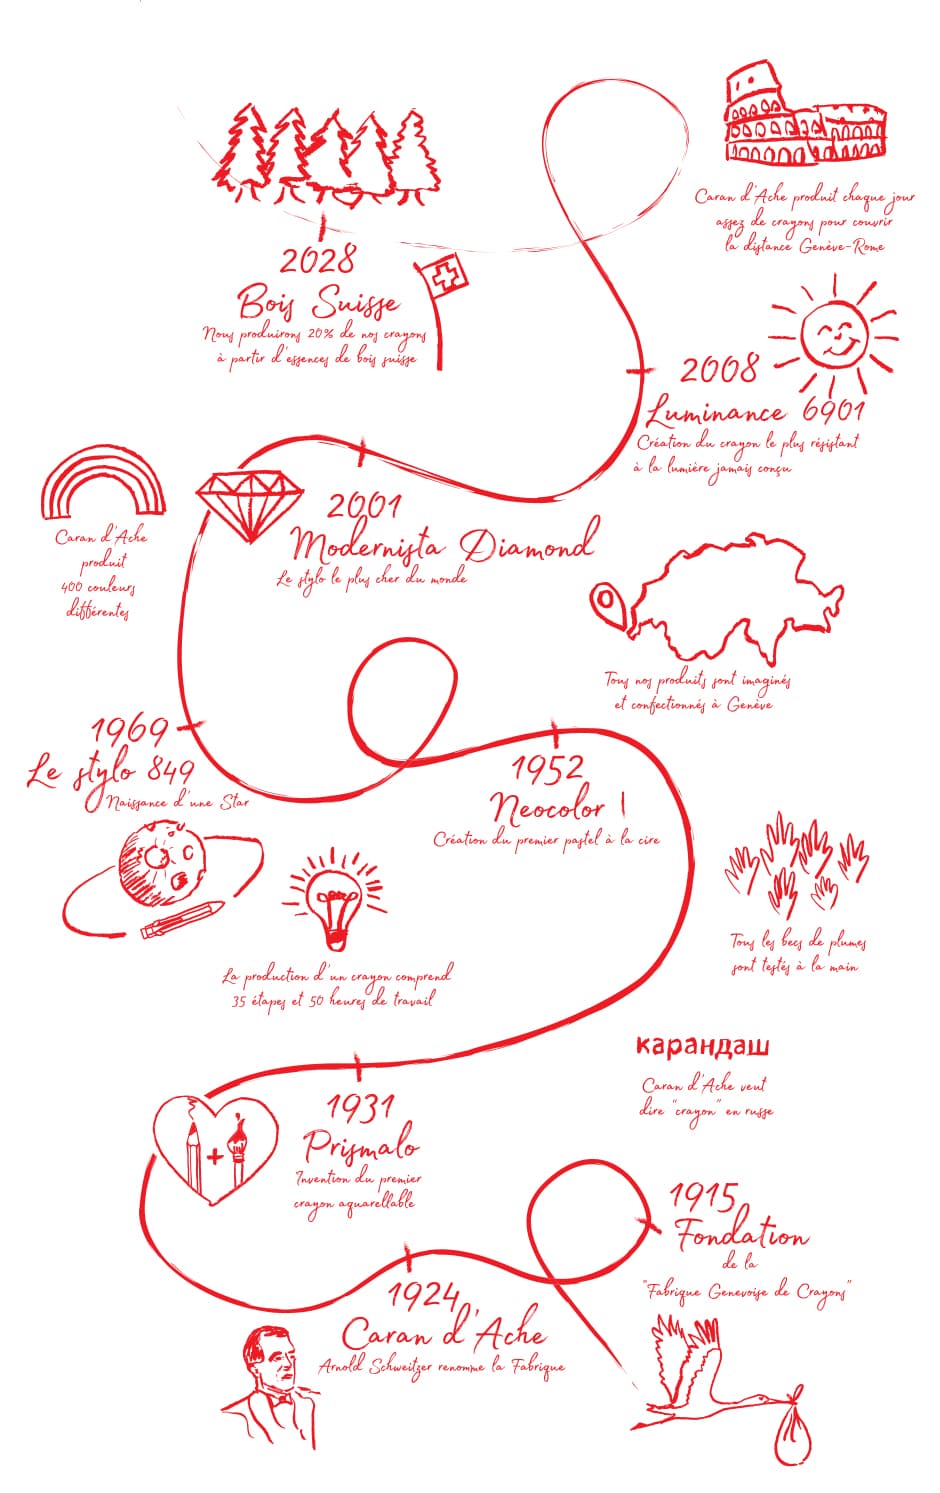 Caran d'Ache produit chaque jour
assez de crayons pour couvrir
la distance Genève-Rome
2028
Bois Suisse
Nous produirons 20% de nos crayons
à partir d'essences de bois suisse
2008
Luminance 6901
Création du crayon le plus résistant
à la lumière jamais conçu
2001
Modernista Diamond
Le stylo le plus cher du monde
Caran d'Ache
produit
400 couleurs
différentes
Tous nos produits sont imaginés
et confectionnés à Genève
1969
Le stylo 849
Naissance d'une Star
1952
Neocolor I
Création du premier pastel à la cire
Tous les becs de plumes
sont testés à la main
La production d'un crayon comprend
35 étapes et 50 heures de travail
карандаш
Caran d'Ache veut
dire "crayon" en russe
1931
Prismalo
Invention du premier
crayon aquarellable
1915
Fondation
de la
"Fabrique Genevoise de Crayons"
1924
Caran d'Ache
Arnold Schweitzer renomme la Fabrique